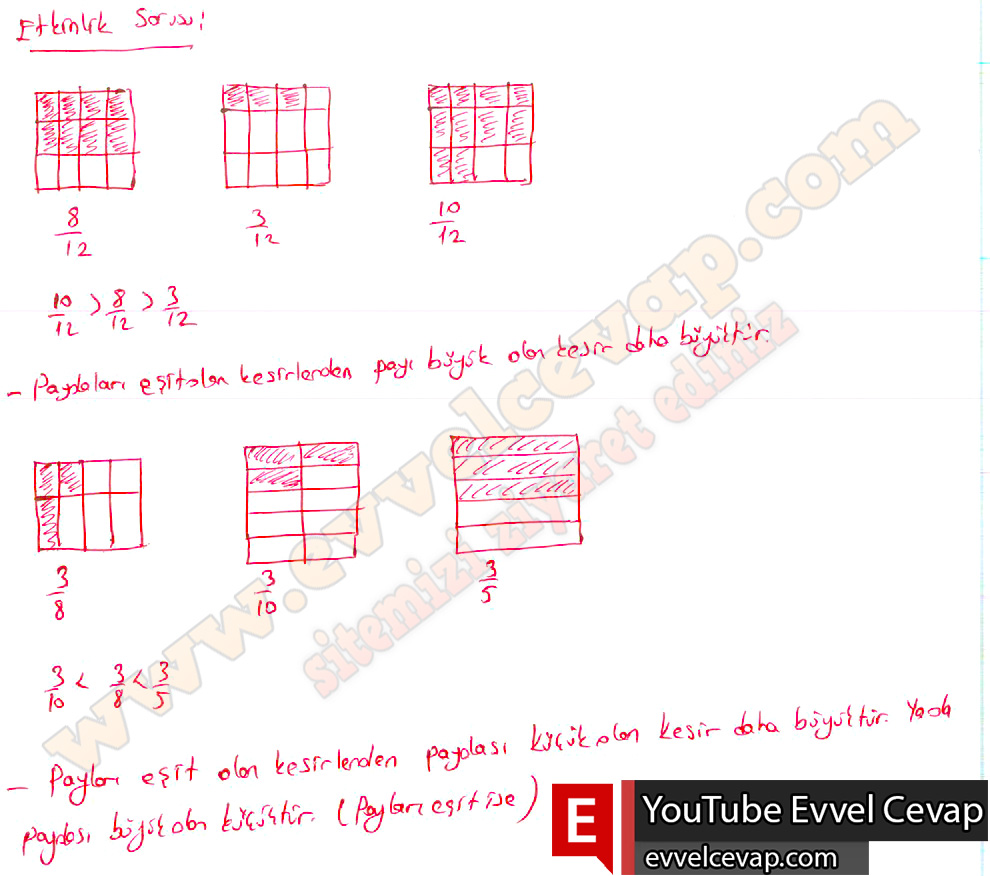 Etkinlik Sorusu:
8/12 3/12 10/12
10/12 > 8/12 > 3/12
- Paydaları eşit olan kesirlerden payı büyük olan kesir daha büyüktür.
3/8 3/10 3/5
3/10 < 3/8 < 3/5
- Payları eşit olan kesirlerden paydası küçük olan kesir daha büyüktür. Yada
paydası büyük olan küçüktür. (Payları eşit ise)
www.evvelcevap.com
sitemizi ziyaret ediniz
E YouTube Evvel Cevap
evvelcevap.com